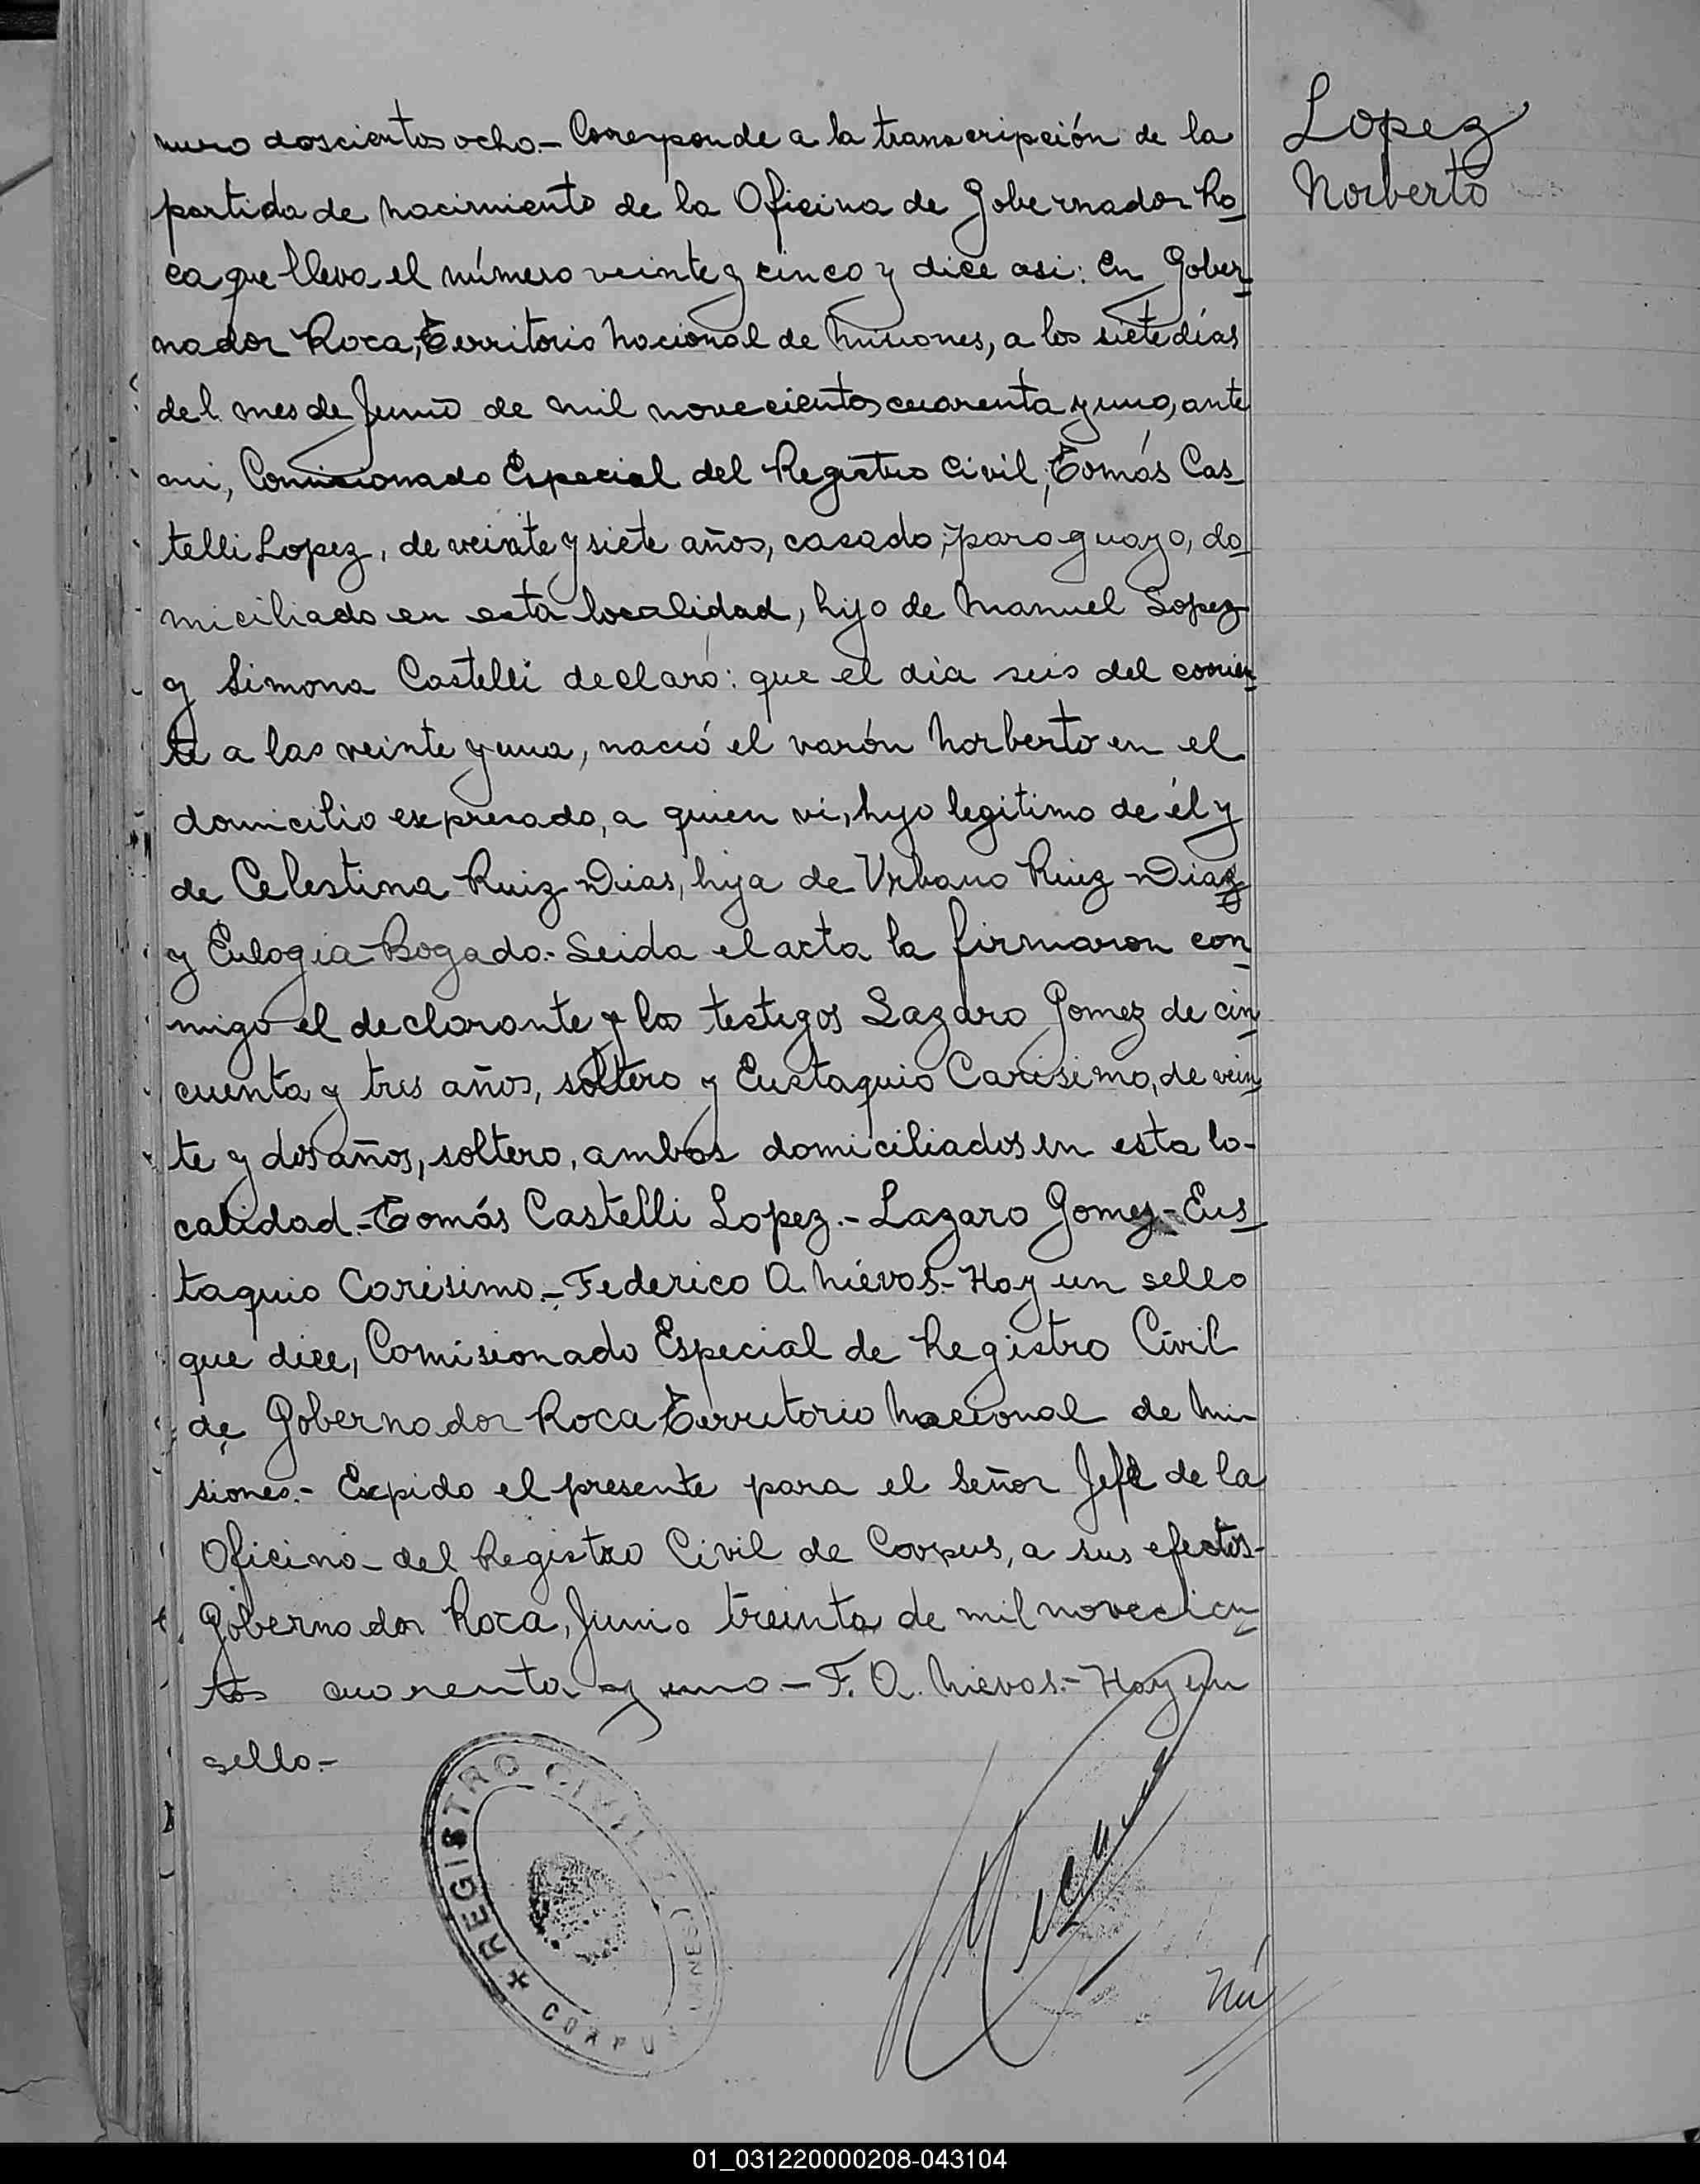 Lopez
Norberto
mero doscientos ocho.- Corresponde a la transcripción de la
partida de nacimiento de la Oficina de Gobernador Ro_
ca que lleva el número veinte y cinco y dice asi: En Gober_
nador Roca, Territorio Nacional de Misiones, a los siete días
del mes de Junio de mil novecientos cuarenta y uno, ante
mi, Comisionado Especial del Registro Civil, Tomás Cas_
telli Lopez, de veinte y siete años, casado, paraguayo, do_
miciliado en esta localidad, hijo de Manuel Lopez
y Simona Castelli declaró: que el día seis del corrien_
te a las veinte y una, nació el varón Norberto en el
domicilio expresado, a quien vi, hijo legitimo de él y
de Celestina Ruiz Dias, hija de Urbano Ruiz Diaz
y Eulogia Bogado.- Leida el acta la firmaron con_
migo el declarante y los testigos Lazaro Gomez de cin_
cuenta y tres años, soltero y Eustaquio Carisimo, de vein_
te y dos años, soltero, ambos domiciliados en esta lo-
calidad.- Tomás Castelli Lopez.- Lazaro Gomez- Eus_
taquio Carisimo.- Federico A. Nievas.- Hay un sello
que dice, Comisionado Especial de Registro Civil
de Gobernador Roca Territorio Nacional de Mi-
siones.- Expido el presente para el Señor Jefe de la
Oficina del Registro Civil de Corpus, a sus efectos-
Gobernador Roca, Junio treinta de mil novecien_
tos cuarenta y uno - F. A. Nievas.- Hay un
sello.-
REGISTRO CIVIL
CORPUS (MNES)
Nú
01_031220000208-043104